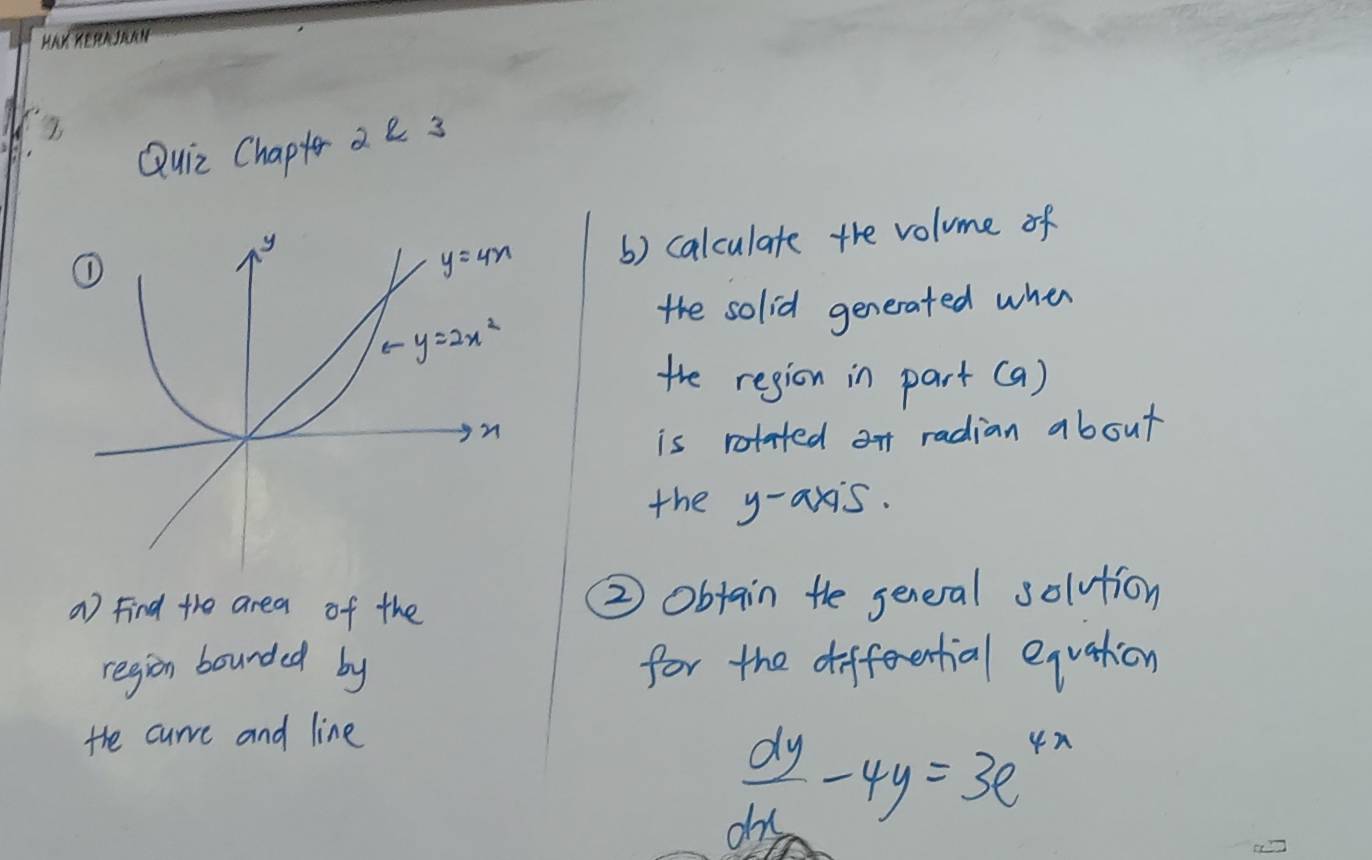 HAK KERAJAAN
Quiz Chapter 2 & 3
①
y
y=4x
← y=2x²
x
a) Find the area of the
region bounded by
the curve and line
b) Calculate the volume of
the solid generated when
the region in part (a)
is rotated 2π radian about
the y-axis.
② Obtain the general solution
for the differential equation
dy/dx - 4y = 3e^4x